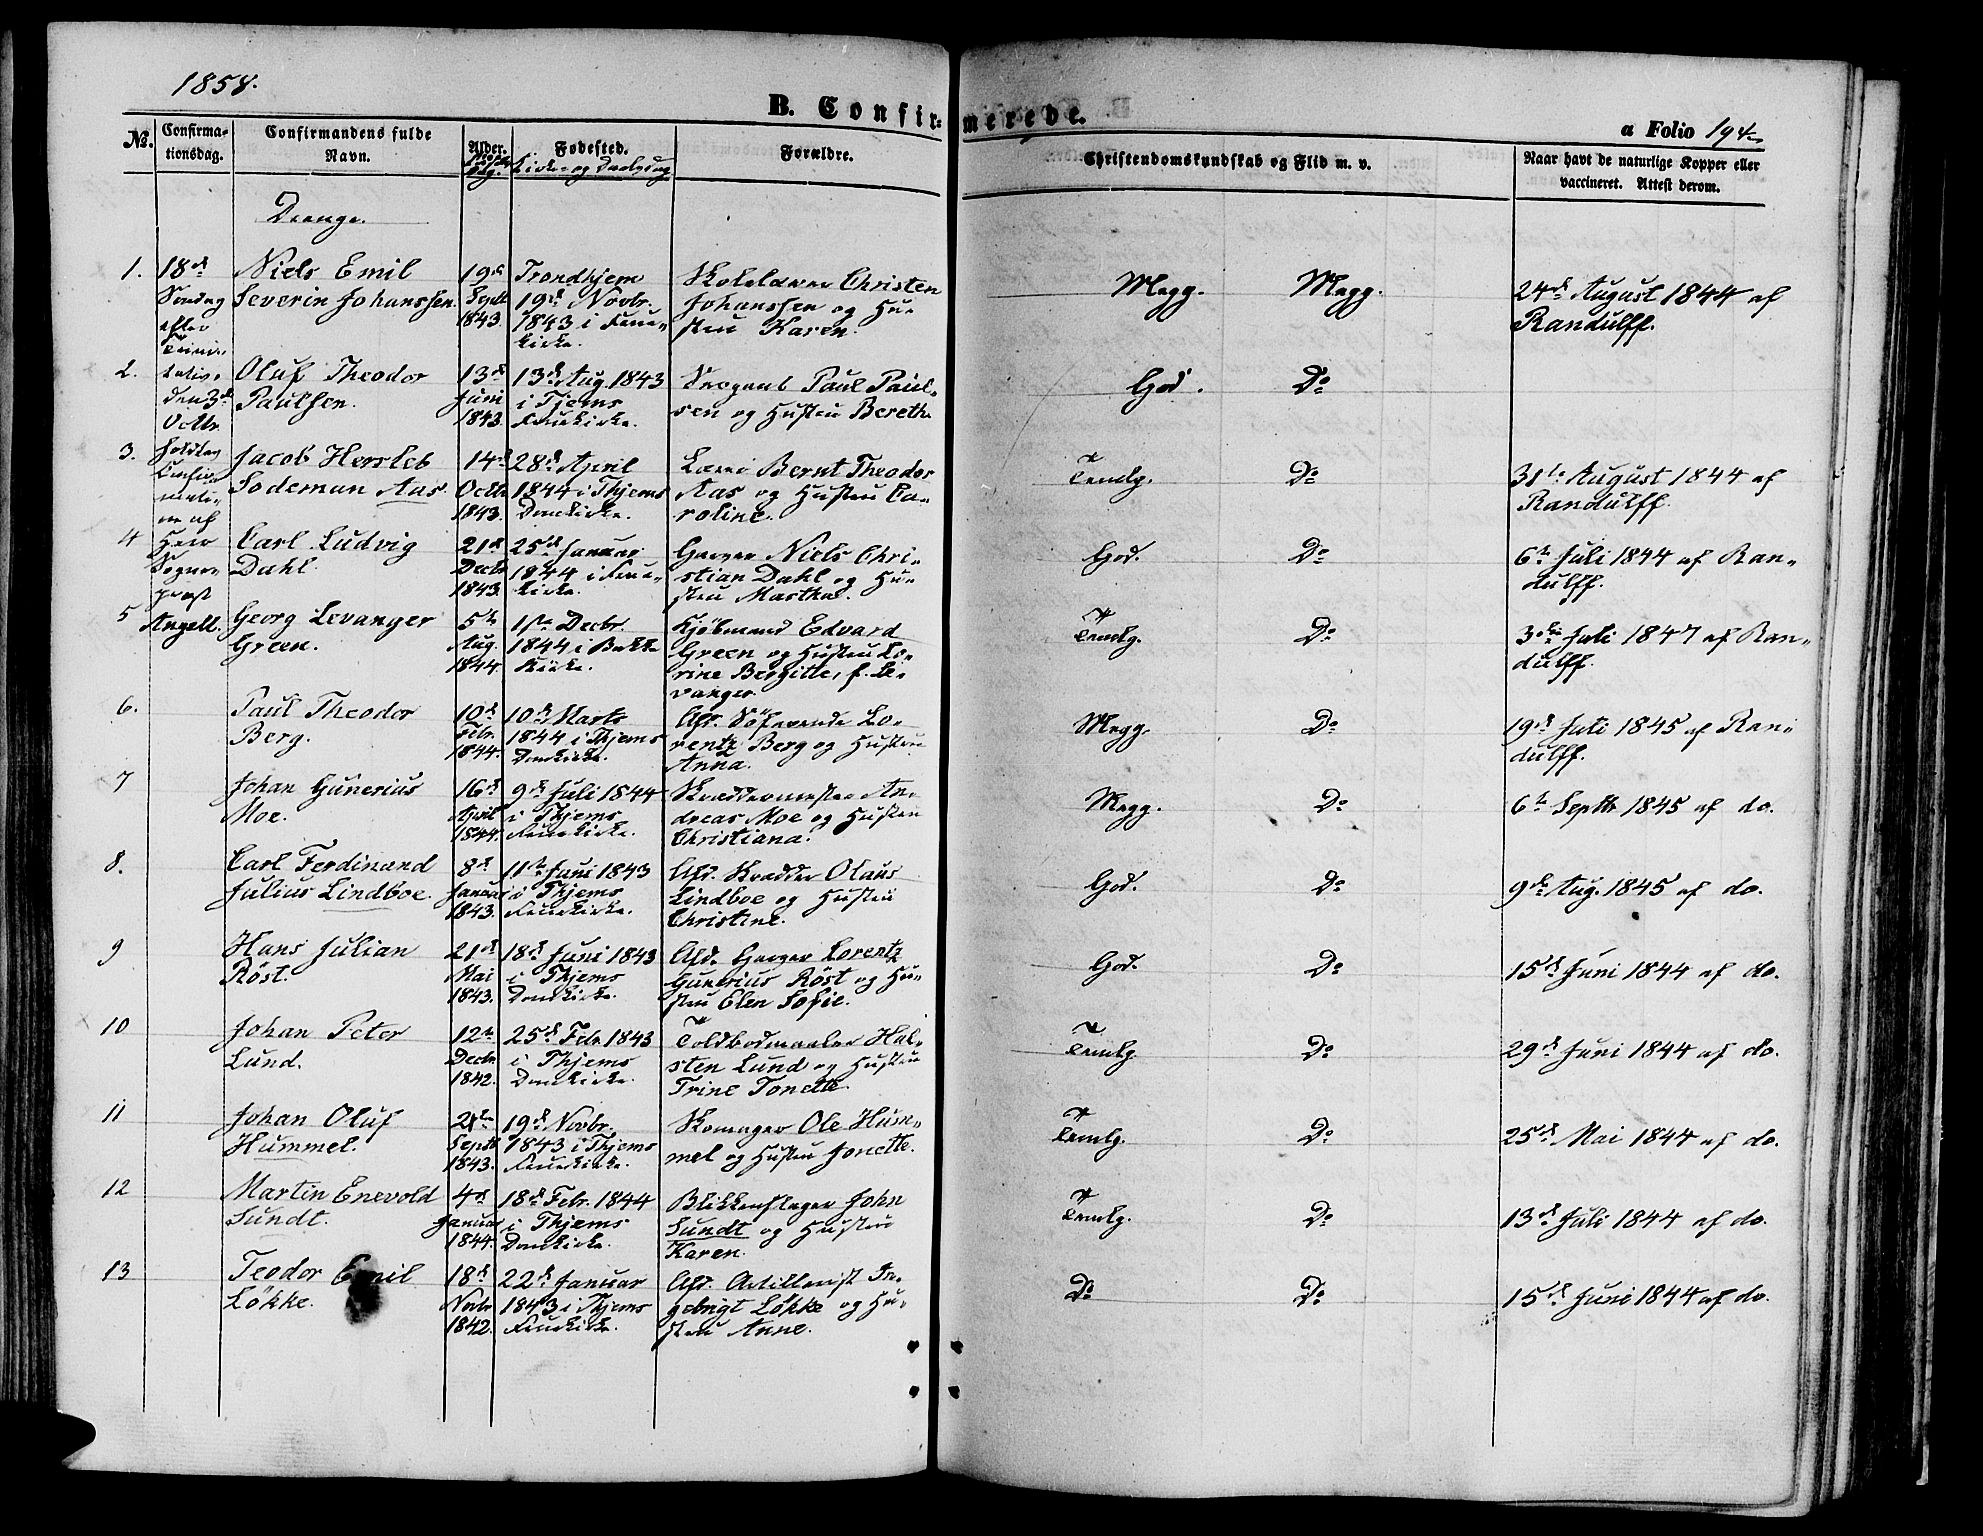 1858.
B. Confir-
merede.
a Folio 194
No.
Confirma-
tionsdag.
Confirmandens fulde
Navn.
Alder.
Fødested.
Kirke- og Daabsdag
Forældre.
Christendomskundskab og Flid m. v.
Naar havt de naturlige Kopper eller
vaccineret. Attest derom.
Drenge.
18de
Søndag
efter
Trini-
tatis,
den 3die
Octbr.
holdtes
Confir-
mati-
on af
Herr
Sogne-
præst
Angell.
1.
Niels Emil
Severin Johanssen.
19de
Septb
1843.
Trondhjem
19de Novbr.
1843 i Frue-
kirke.
Skolelærer Christen
Johanssen og Hu-
stru Karen.
Megg. Megg.
24de August 1844 af
Randulff.
2.
Oluf Theodor
Paulsen.
13de
Juni
1843.
13de Aug. 1843
i Tjems
Fruekirke.
Sergeant Paul Paul-
sen og Hustru Bereth.
God. Do
3.
Jacob Hersleb
Sodeman Aas.
14de
Octbr
1843.
28de April
1844 i Thjems
Domkirke.
Bernt Theodor
Aas og Hustru Ca-
roline.
Temlg. Do
31te August 1844 af
Randulff.
4
Carl Ludvig
Dahl.
21de
Decbr
1843.
25de Januar
1844 i Frue-
kirke.
Garver Niels Chri-
stian Dahl og Hu-
stru Martha.
God. Do
6te Juli 1844 af Ran-
dulff.
5
Georg Levanger
Green.
5te
Aug.
1844.
1ste Decbr.
1844 i Bakke
Kirke.
Kjøbmand Edvard
Green og Hustru Ca-
rine Bergitte, f. Le-
vanger.
Temlg. Do
3die Juli 1847 af Ran-
dulff.
6.
Paul Theodor
Berg.
10de
Febr.
1844.
10de Marts
1844 i Thjems
Domkirke.
Afd. Søfarende Lo-
rentz Berg og Hustru
Anna.
Megg. Do
19de Juli 1845 af Ran-
dulff.
7
Johan Gunerius
Moe.
16de
April
1844.
9de Juli 1844
i Thjems
Fruekirke.
Skreddermester An-
dreas Moe og Hustru
Christiana.
Megg. Do
6te Septb 1845 af do.
8.
Carl Ferdinand
Julius Lindboe.
8de
Januar
1843.
11te Juni 1843
i Thjems
Fruekirke.
Afd. Skredder Olaus
Lindboe og Hustru
Christine.
God. Do
9de Aug. 1845 af do.
9
Hans Julian
Röst.
21de
Mai
1843.
18de Juni 1843
i Thjems
Domkirke.
Afd. Garver Lorentz
Gunerius Röst og Hu-
stru Elen Sofie.
God. Do
15de Juni 1844 af do.
10
Johan Peter
Lund.
12te
Decbr
1842.
25de Febr. 1843
i Thjems
Domkirke.
Toldbodmaaler Hal-
sten Lund og Hustru
Trine Tonette.
Temlg Do
29de Juni 1844 af do.
11
Johan Oluf
Hummel.
Septb
1843.
19de Novbr.
1843 i Thjems
Fruekirke.
Skomager Ole Hum-
mel og Hustru Jonette.
Temlg. Do
25de Mai 1844 af do.
12
Martin Enevold
Sundt.
4de
Januar
1844.
18de Febr. 1844
i Thjems
Domkirke.
Blikkenslager John
Sundt og Hustru
Karen.
Temlg. Do
13de Juli 1844 af do.
13
Teodor Emil
Løkke.
18de
Novbr
1842.
22de Januar
1843 i Thjems
Fruekirke.
Afd. Artillerist In-
gebrigt Løkke og Hu-
stru Anne.
Do Do
15de Juni 1844 af do.